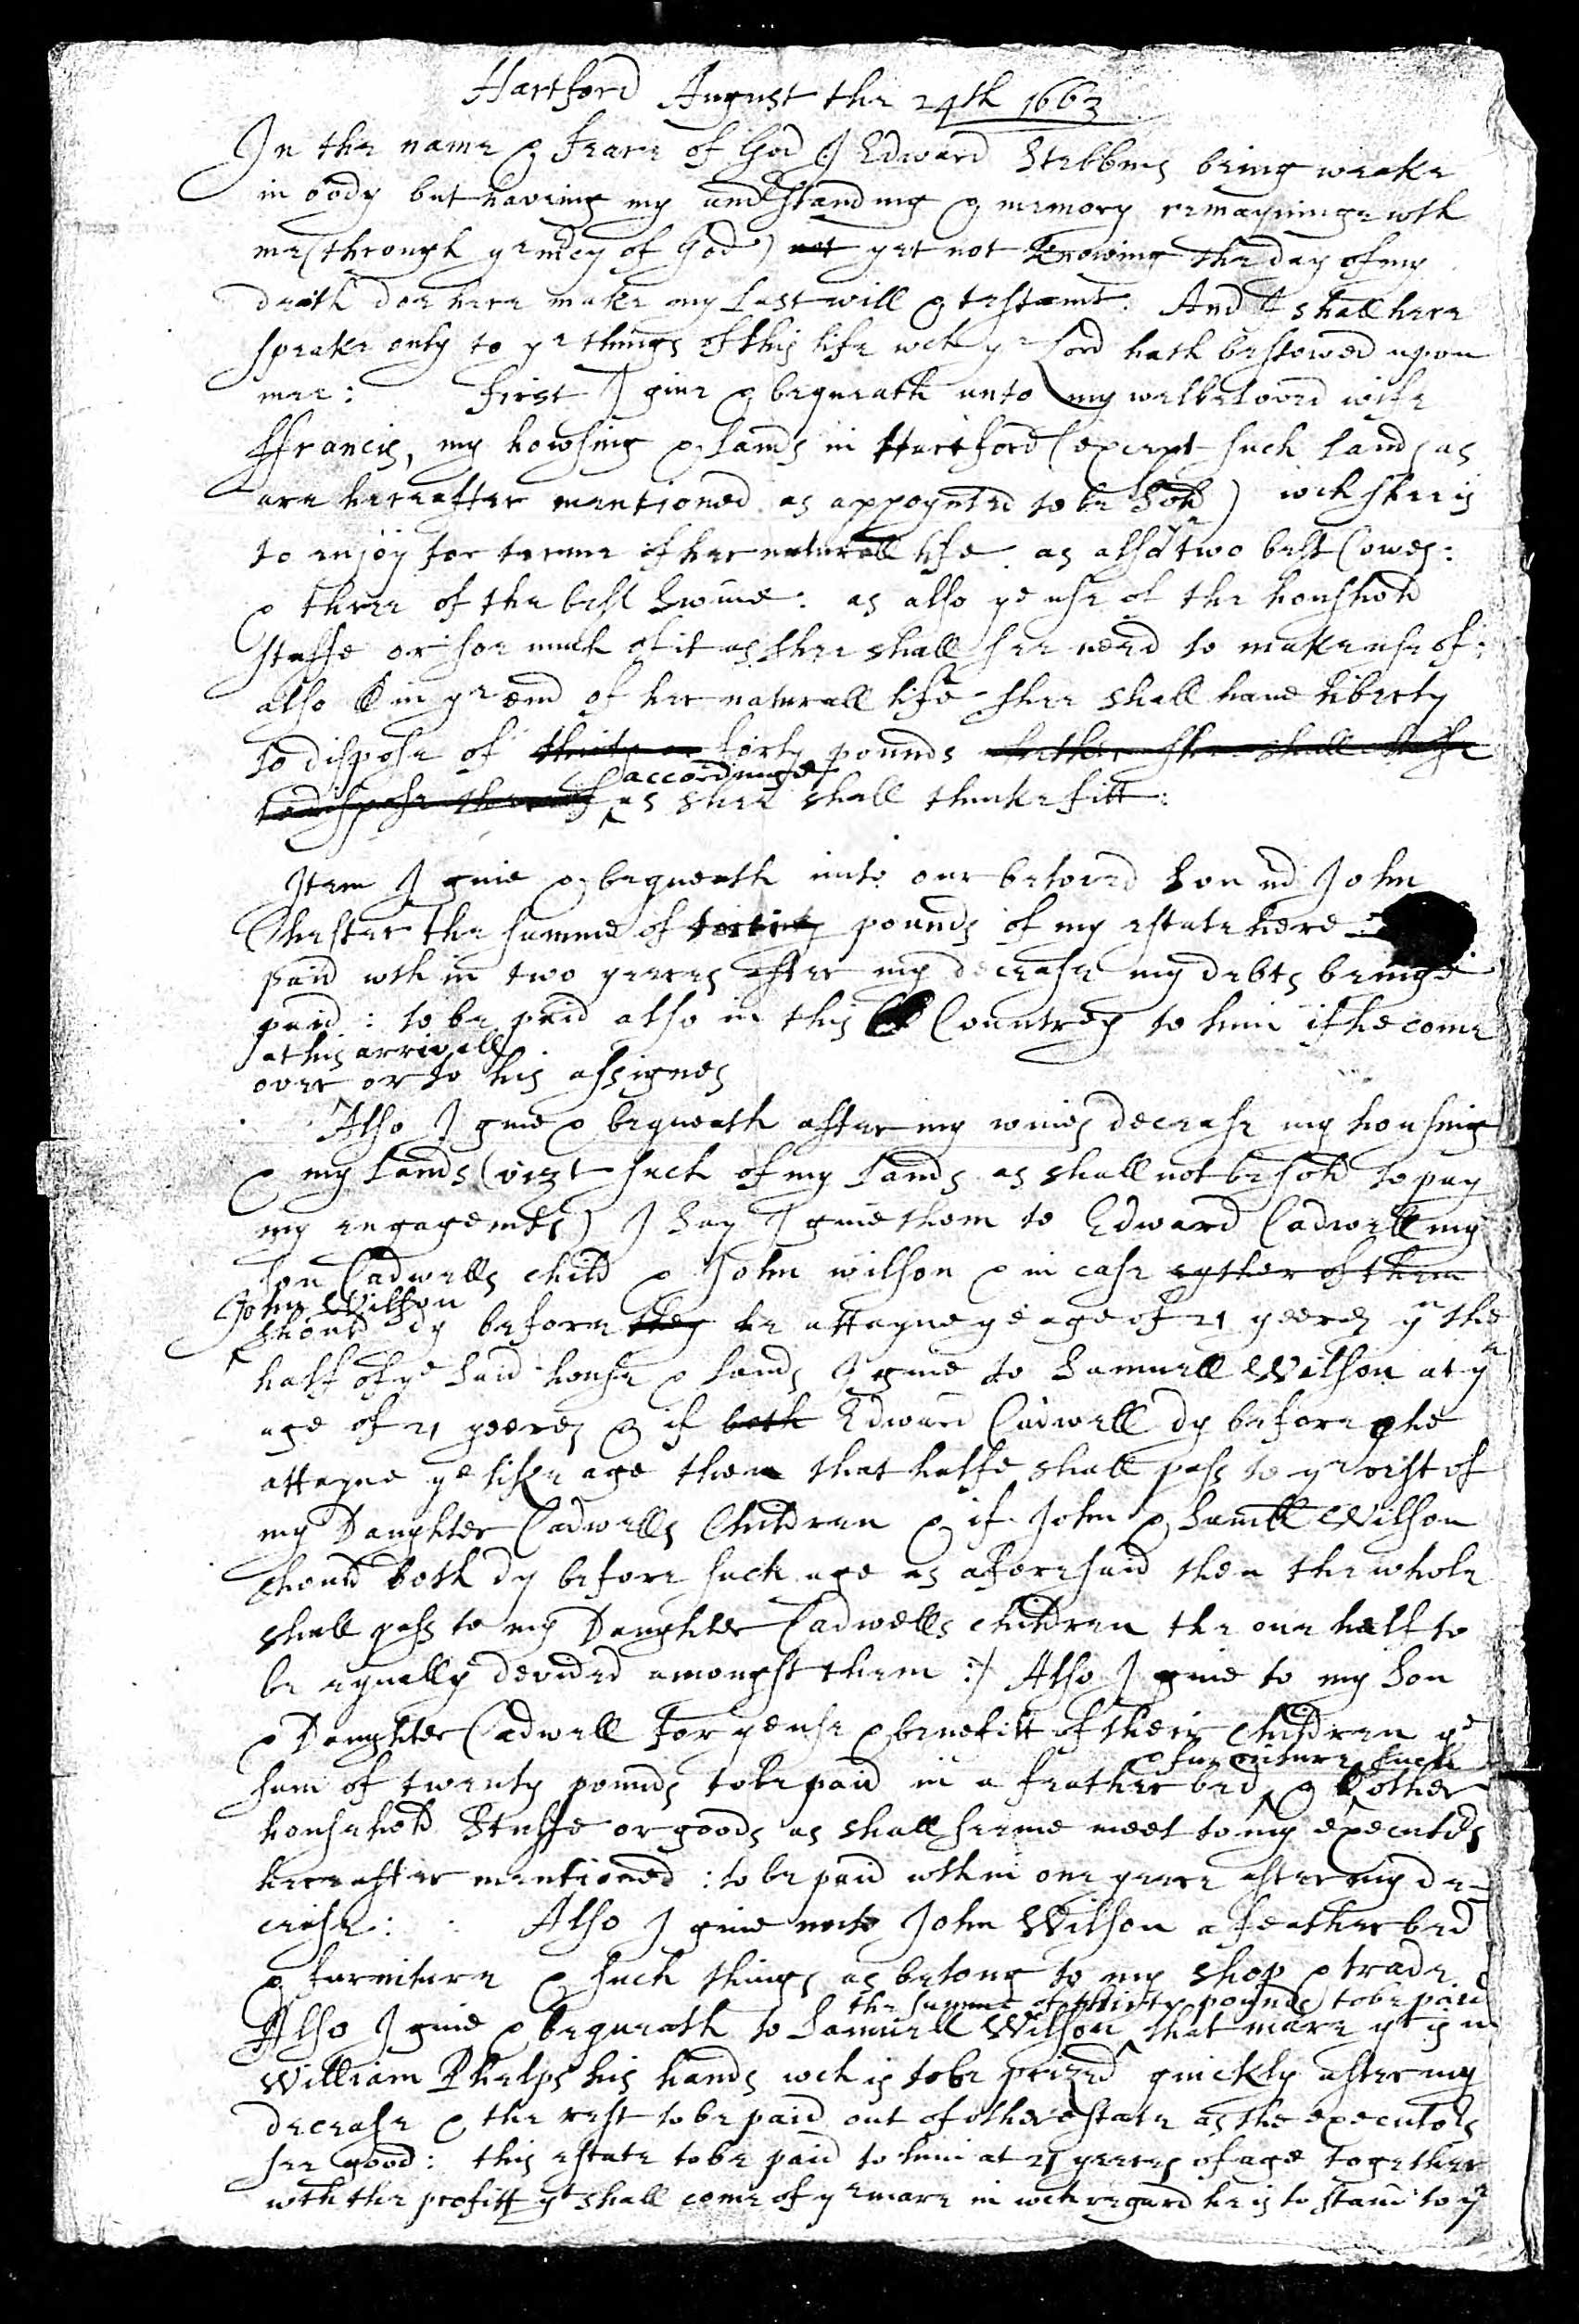 Hartford August the 24th 1663
In the name & feare of God I Edward Stebbing being weake
in body but having my understanding & memory remayninge wth
me (through ye mercy of God) not yet not knowing the day of my
death doe here make my last will & testamt: And I shall here
speake only to ye things of this life wch ye Lord hath bestowed upon
mee: First I giue & bequeath unto my welbeloved wife
ffrancis, my howsing & lands in Hartford (except such lands as
are hereafter mentioned as appoynted to be sold) wch shee is
to enjoy for terme of her naturall life as also ye two best Cowes:
& three of the best Swine: as also ye use of the houshold
stuffe or soe much of it as shee shall see need to make use of:
also in ye end of her naturall life shee shall haue liberty
to dispose of thirty or forty pounds whether shee shall
to dispose thereof accordinge as shee shall thinke fitt:
Item I giue & bequeath unto our beloved Son John
Chester the summe of pounds of my estate here
paid wth in two yeeres after my decease my debts beinge
paid: to be paid also in this Countrey to him if he come
at his arrivall
over or to his assignes
Also I giue & bequeath after my wiues decease my housing
& my lands (vizt such of my lands as shall not be sold to pay
my engagemts) I say I giue them to Edward Cadwell my
son Cadwells child & John wilson & in case eyther of them
John Wilson
should dy before they he attayne ye age of 21 yeeres yn the
half of ye said house & lands I giue to Samuell Wilson at ye
age of 21 yeeres & if both Edward Cadwell dy before he
attayne ye like age then that halfe shall pass to ye rest of
my Daughter Cadwells Children & if John & Samll Wilson
should both dy before such age as aforesaid then the whole
shall pass to my Daughter Cadwells children the one half to
be equally devided amongst them :/ Also I giue to my Son
& Daughter Cadwell for ye use & benefitt of their Children ye
& furniture such
sum of twenty pounds to be paid in a feather bed & other
household Stuffe or goods as shall seeme meet to my executors
hereafter mentioned: to be paid wthin one yeere after my de-
cease: Also I giue unto John Wilson a feather bed
& furniture & such things as belong to my shop & trade
the summe of thirty pounds to be paid
Also I giue & bequeath to Samuell Wilson that mare yt is in
William Phelps his hands wch is to be prized quickly after my
decease & the rest to be paid out of other estate as the executors
see good: this estate to be paid to him at 21 yeeres of age together
wth the profitt yt shall come of ye mare in wch regard he is to stand to ye